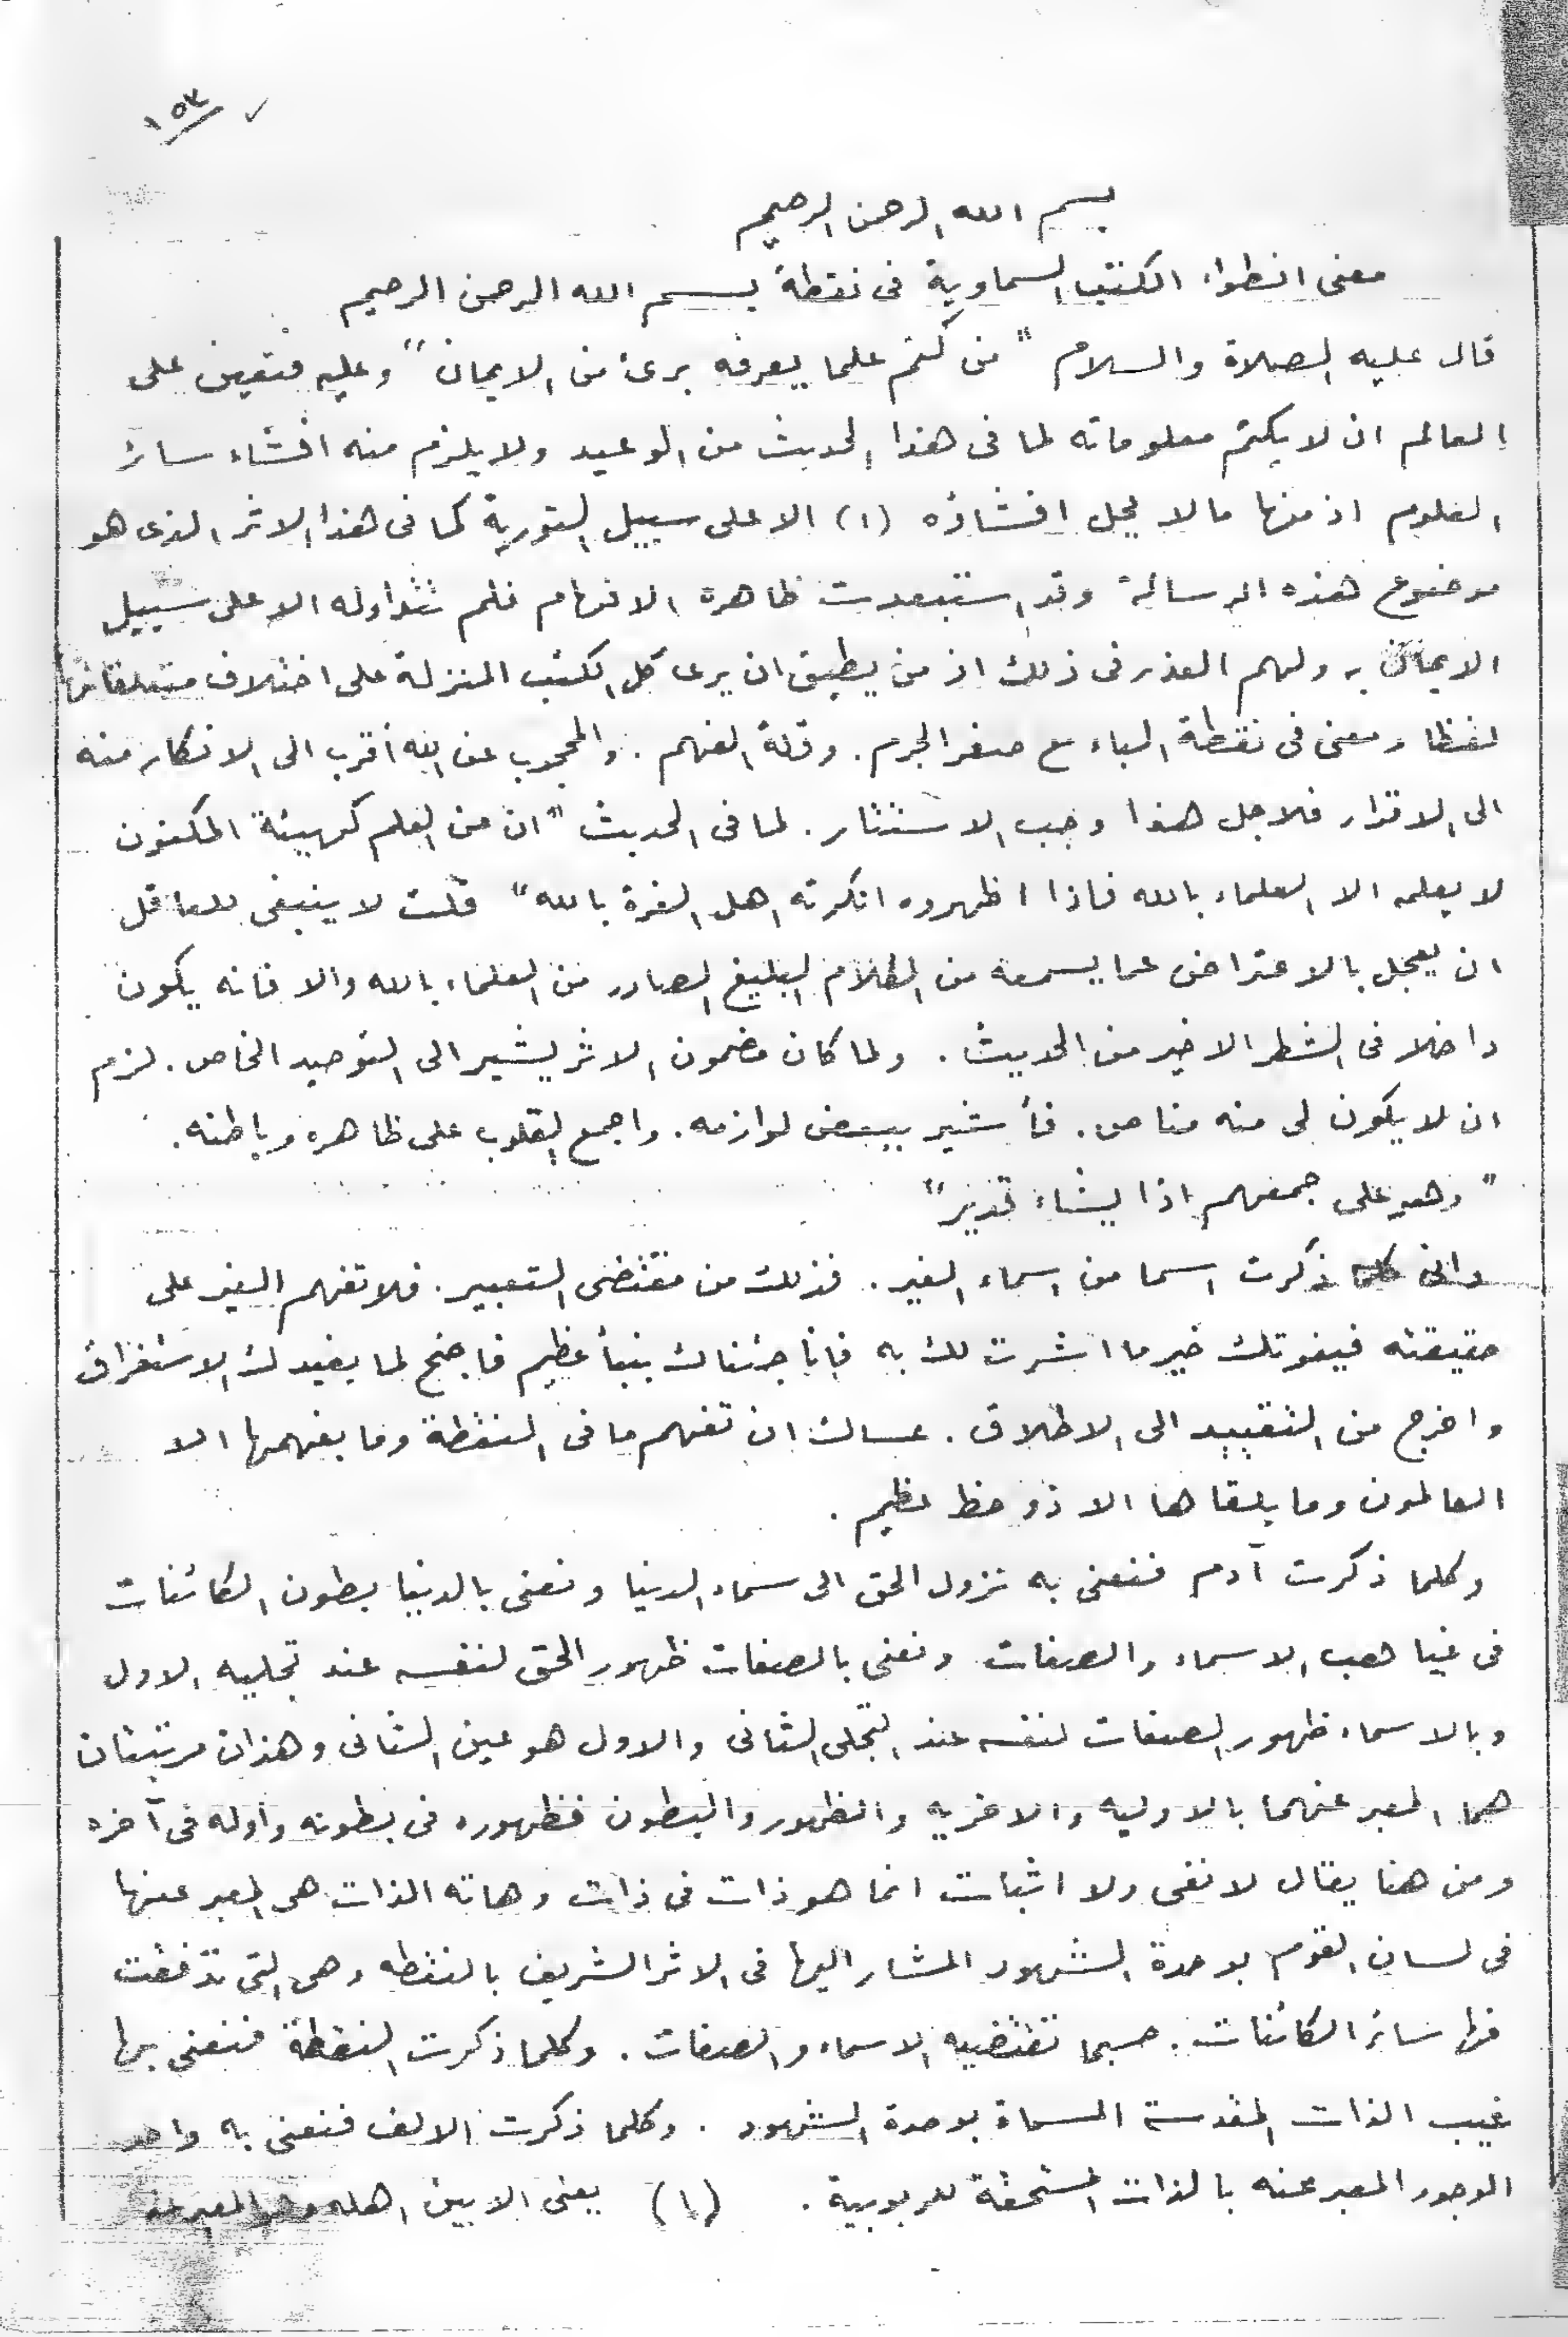 ١٥٣
بسم الله الرحمن الرحيم
معنى انطواء الكتب السماوية فى نقطة بسم الله الرحمن الرحيم
قال عليه الصلاة والسلام " من كتم علما يعرفه برئ من الايمان " وعليه فتعين على
العالم ان لا يكتم معلوماته لما فى هذا الحديث من الوعيد ولا يلزم منه افشاء سائر
العلوم اذ منها مالا يحل افشاؤه (١) الا على سبيل التورية كما فى هذا الاثر الذى هو
موضوع هذه الرسالة وقد استبعدت ظاهره الافهام فلم تتداوله الا على سبيل
الايمان به ولهم العذر فى ذلك اذ من يطيق ان يرى كل الكتب المنزلة على اختلاف متعلقاتها
لفظا ومعنى فى نقطة الباء مع صغر الجرم . وقلة الفهم . والمحجوب عن الله أقرب الى الانكار منه
الى الاقرار فلاجل هذا وجب الاستتار . لما فى الحديث " ان من العلم كهيئة المكنون
لا يعلمه الا العلماء بالله فاذا اظهروه انكرته اهل الغرة بالله " قلت لا ينبغى للعاقل
ان يعجل بالاعتراض عما يسمعه من الكلام البليغ الصادر من العلماء بالله والا فانه يكون
داخلا فى الشطر الاخير من الحديث . ولما كان مضمون الاثر يشير الى التوحيد الخاص . لزم
ان لا يكون لى منه مناص . فأشير ببعض لوازمه . واجمع القلوب على ظاهره وباطنه .
" وهو على جمعهم اذا يشاء قدير "
وانى ذكرت اسما من اسماء الغير . فذلك من مقتضى التعبير . فلا تفهم الغير على
حقيقته فيفوتك خير ما اشرت لك به فانا جئناك بنبأ عظيم فاجنح لما يفيدك الاستغراق
واخرج من التقييد الى الاطلاق . عساك ان تفهم ما فى النقطة وما يفهمها الا
العالمون وما يلقاها الا ذو حظ عظيم .
وكلما ذكرت آدم فنعنى به نزول الحق الى سماء الدنيا ونعنى بالدنيا بطون الكائنات
فى غياهب الاسماء والصفات ونعنى بالصفات ظهور الحق لنفسه عند تجليه الاول
وبالاسماء ظهور الصفات لنفسه عند التجلى الثانى والاول هو عين الثانى وهذان مرتبتان
هما المعبر عنهما بالاوليه والاخريه والظهور والبطون فظهوره فى بطونه وأوله فى آخره
ومن هنا يقال لا نفى ولا اثبات انما هو ذات فى ذات وهاته الذات هى المعبر عنها
فى لسان القوم بوحدة الشهود المشار اليها فى الاثر الشريف بالنقطه وهى التى تدفقت
منها سائر الكائنات . حسبما تقتضيه الاسماء والصفات . وكلما ذكرت النقطة فنعنى بها
غيب الذات المقدسة المسماة بوحدة الشهود . وكلما ذكرت الالف فنعنى به واحد
الوجود المعبر عنه بالذات المستحقة للربوبية . (١) يعنى الا بين اهله